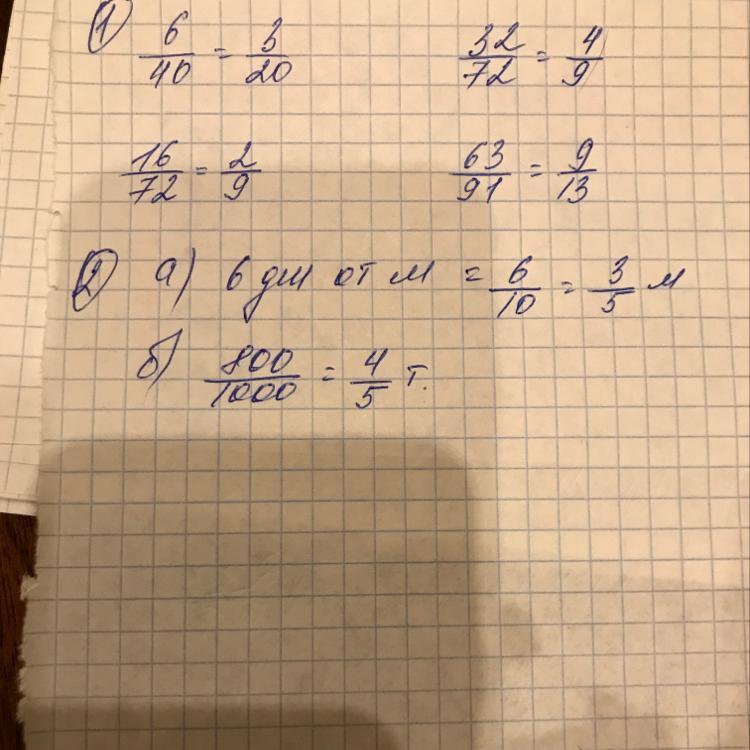 1 6/40 = 3/20 32/72 = 4/9
16/72 = 2/9 63/91 = 9/13
2 а) 6 дм от м = 6/10 = 3/5 м
б) 800/1000 = 4/5 т.